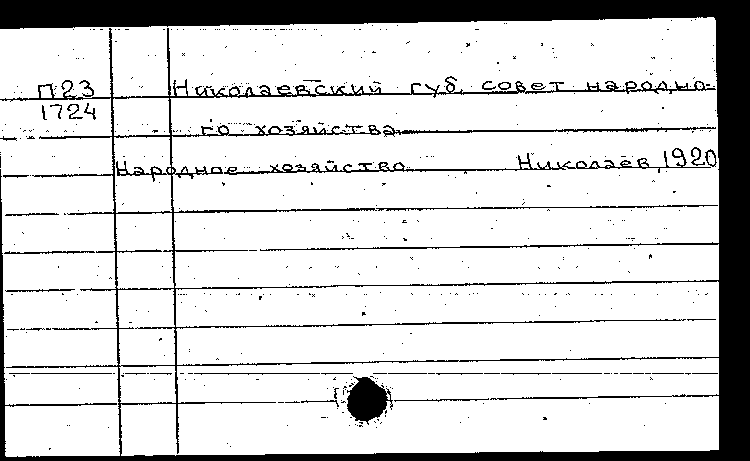 П23 Николаевский губ. совет народно-
1724
го хозяйства
Народное хозяйство Николаев, 1920